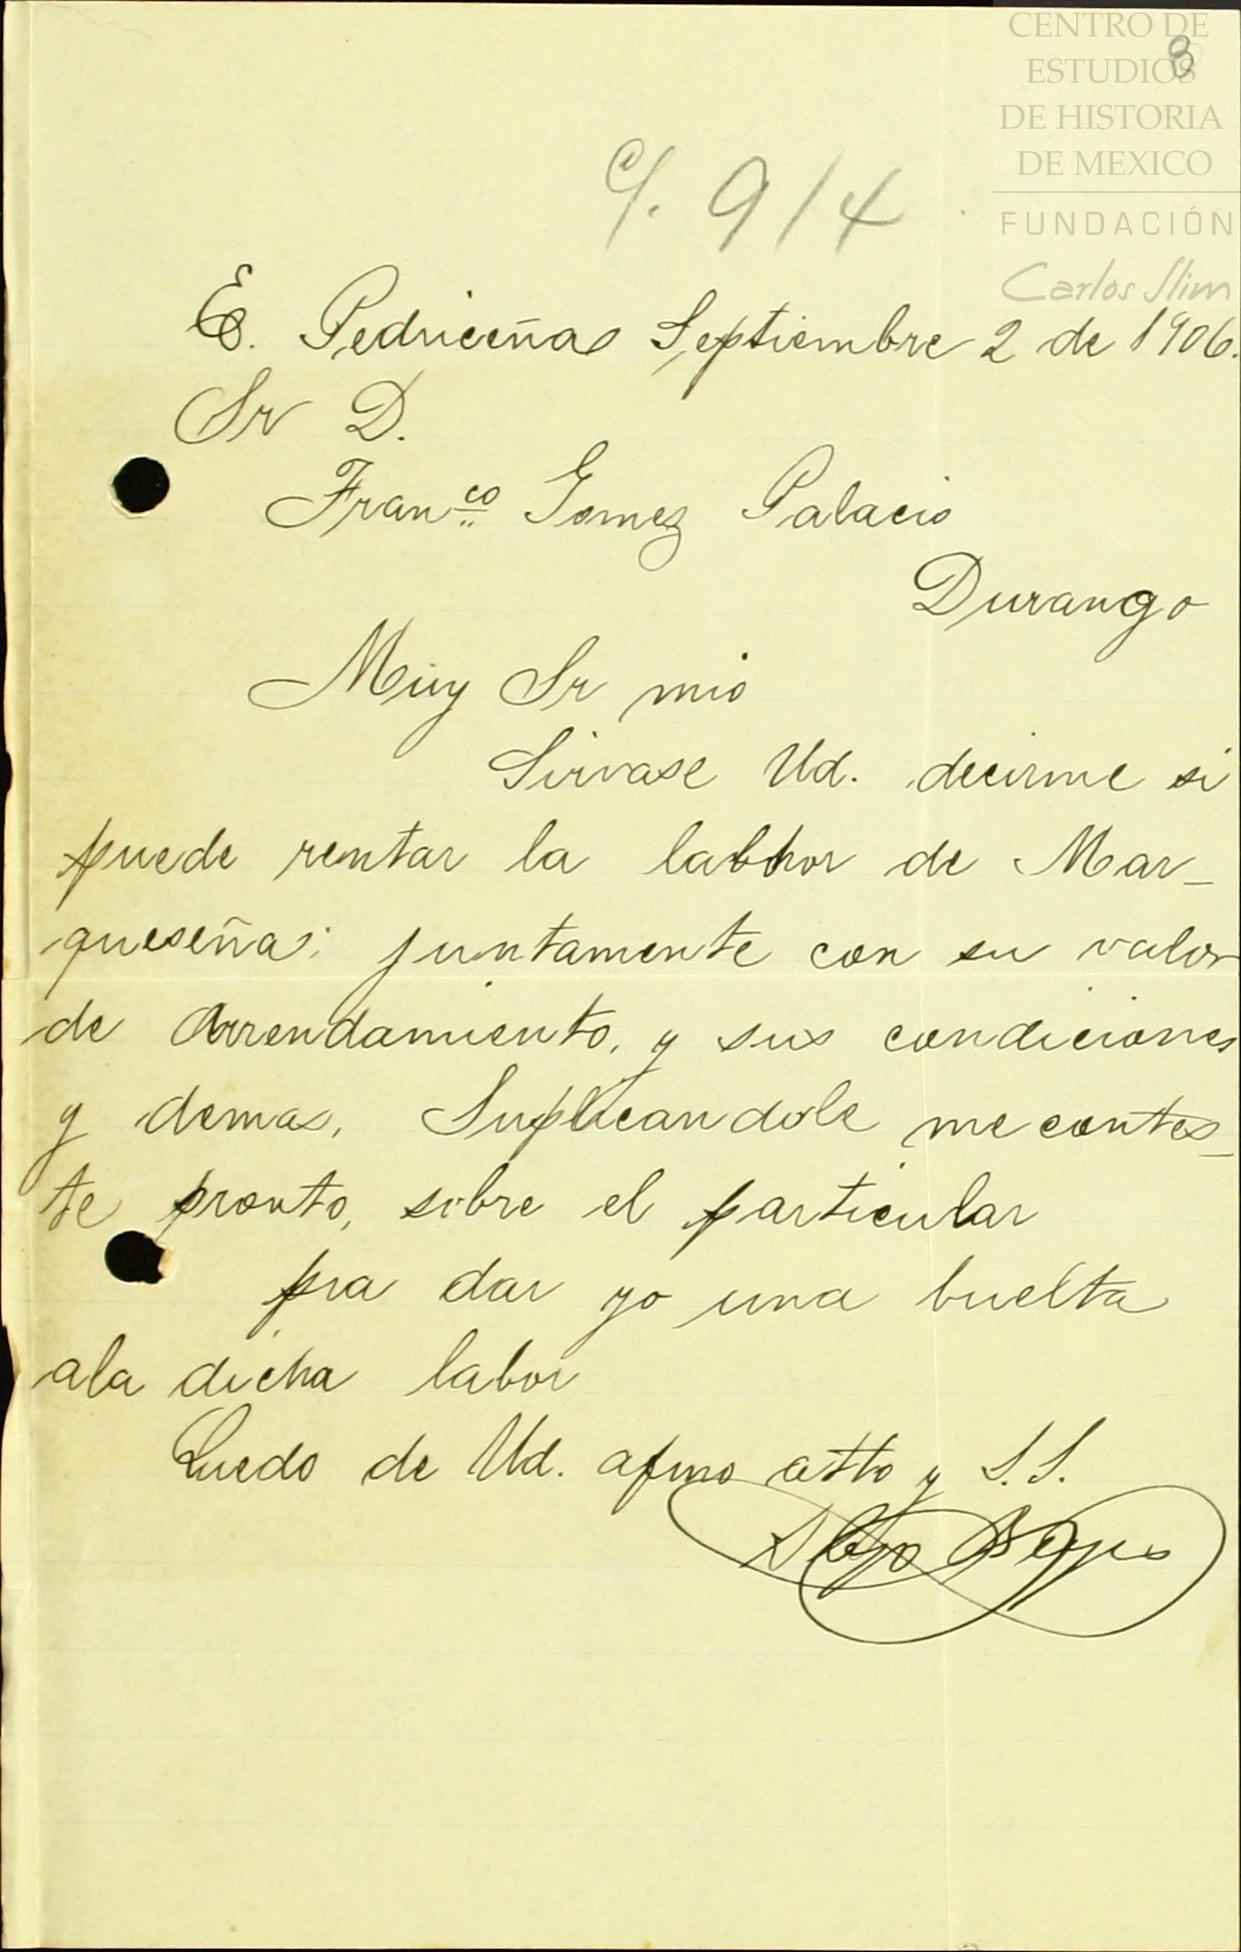 CENTRO DE
ESTUDIOS
DE HISTORIA
DE MEXICO
FUNDACIÓN
Carlos Slim
8
c/. 9/4
E. Pedriceñas Septiembre 2 de 1906.
Sr D.
Franco Gomez Palacio
Durango
Muy Sr mio
Sirvase Ud. decirme si
puede rentar la labhor de Mar-
queseña; juntamente con su valor
de Arrendamiento, y sus condiciones
y demas, Suplicandole me contes-
te pronto, sobre el particular
pra dar yo una buelta
ala dicha labor
Quedo de Ud. afmo atto y S.S.
Reyes